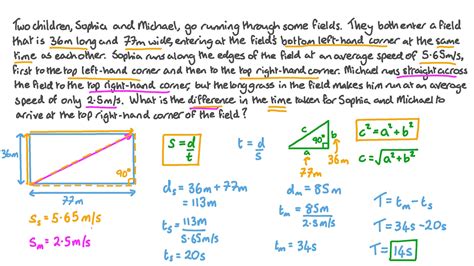 Two children, Sophia and Michael, go running through some fields. They both enter a field
that is 36m long and 77m wide, entering at the field's bottom left-hand corner at the same
time as each other. Sophia runs along the edges of the field at an average speed of 5.65m/s,
first to the top left-hand corner and then to the top right-hand corner. Michael runs straight across
the field to the top right-hand corner, but the long grass in the field makes him run at an average
speed of only 2.5m/s. What is the difference in the time taken for Sophia and Michael to
arrive at the top right-hand corner of the field?
36m
90°
77m
s = d/t
t = d/s
c
b
90°
a
36m
77m
c² = a² + b²
c = √a² + b²
dₛ = 36m + 77m
= 113m
tₛ = 113m / 5.65m/s
tₛ = 20s
dₘ = 85m
tₘ = 85m / 2.5m/s
tₘ = 34s
T = tₘ - tₛ
T = 34s - 20s
T = 14s
sₛ = 5.65m/s
sₘ = 2.5m/s